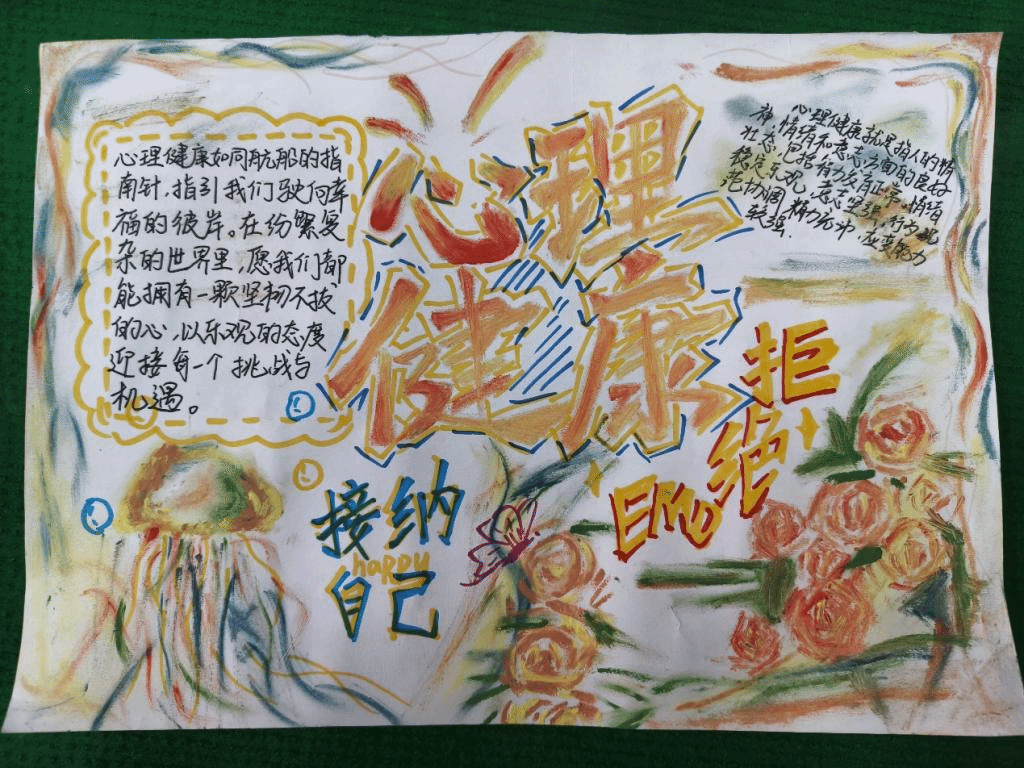 心理健康
心理健康如同航船的指
南针,指引我们驶向幸
福的彼岸。在纷繁复
杂的世界里,愿我们都
能拥有一颗坚韧不拔
的心,以乐观的态度
迎接每一个挑战与
机遇。
心理健康就是指人的情
绪情绪和意志方面的良好
状态,包括有力名正常,情绪
稳定乐观,意志坚强,行为规
范协调,精力充沛,应变能力
较强.
拒绝
EMO
接纳
happy
自己